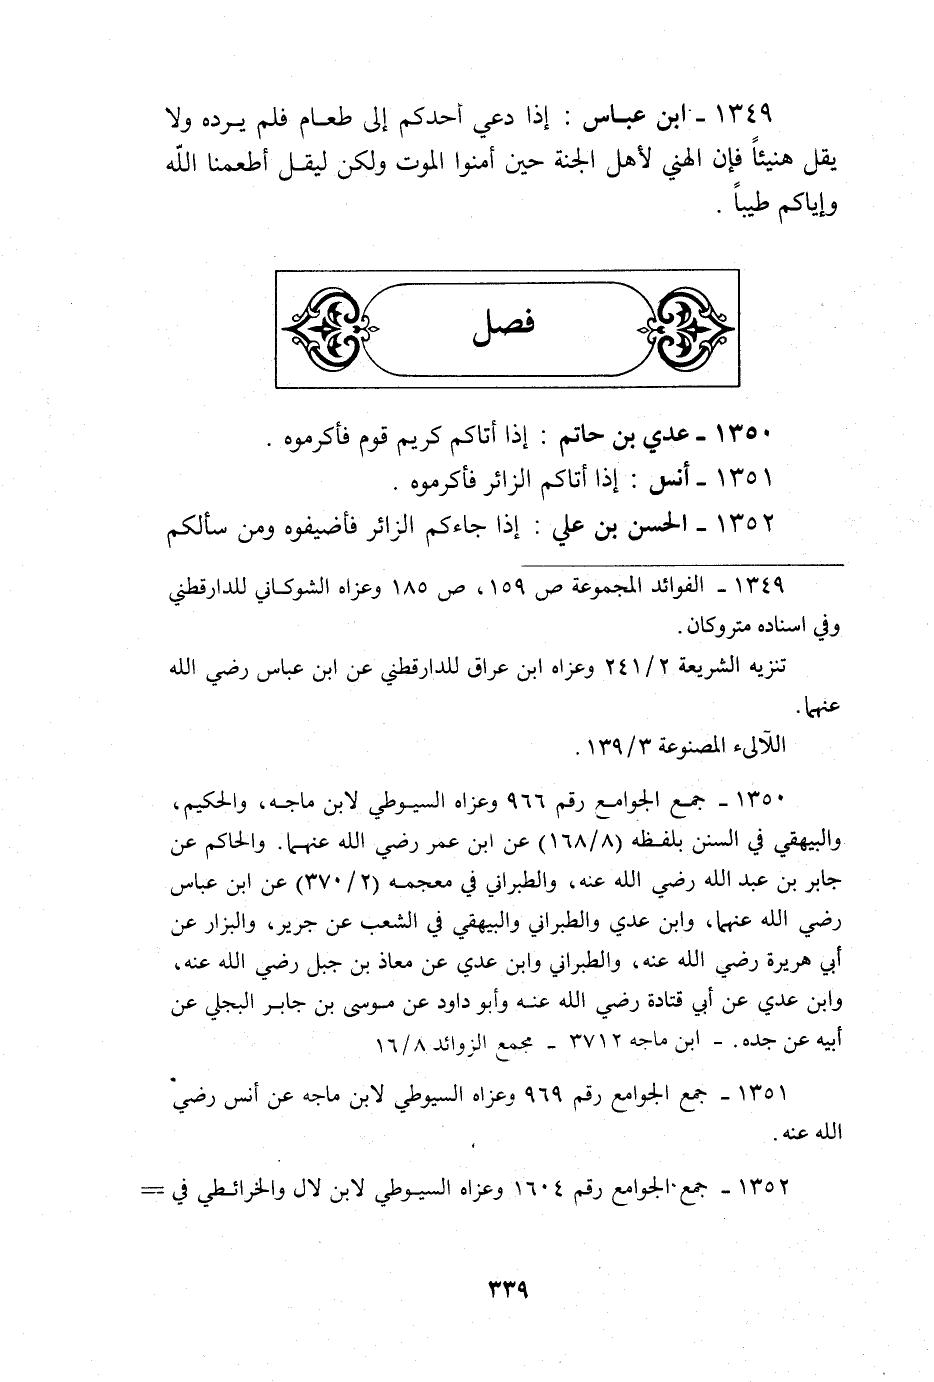 ١٣٤٩ ـ ابن عباس : إذا دعي أحدكم إلى طعام فلم يرده ولا
يقل هنيئاً فإن الهني لأهل الجنة حين أمنوا الموت ولكن ليقل أطعمنا اللّه
وإياكم طيباً .
فصل
١٣٥٠ ـ عدي بن حاتم : إذا أتاكم كريم قوم فأكرموه .
١٣٥١ ـ أنس : إذا أتاكم الزائر فأكرموه .
١٣٥٢ ـ الحسن بن علي : إذا جاءكم الزائر فأضيفوه ومن سألكم
١٣٤٩ ـ الفوائد المجموعة ص ١٥٩، ص ١٨٥ وعزاه الشوكاني للدارقطني
وفي اسناده متروكان.
تنزيه الشريعة ٢٤١/٢ وعزاه ابن عراق للدارقطني عن ابن عباس رضي الله
عنهما.
اللآلىء المصنوعة ١٣٩/٣ .
١٣٥٠ ـ جمع الجوامع رقم ٩٦٦ وعزاه السيوطي لابن ماجه، والحكيم،
والبيهقي في السنن بلفظه (١٦٨/٨) عن ابن عمر رضي الله عنهما. والحاكم عن
جابر بن عبد الله رضي الله عنه، والطبراني في معجمه (٣٧٠/٢) عن ابن عباس
رضي الله عنهما، وابن عدي والطبراني والبيهقي في الشعب عن جرير، والبزار عن
أبي هريرة رضي الله عنه، والطبراني وابن عدي عن معاذ بن جبل رضي الله عنه،
وابن عدي عن أبي قتادة رضي الله عنه وأبو داود عن موسى بن جابر البجلي عن
أبيه عن جده. - ابن ماجه ٣٧١٢ - مجمع الزوائد ١٦/٨
١٣٥١ ـ جمع الجوامع رقم ٩٦٩ وعزاه السيوطي لابن ماجه عن أنس رضي
الله عنه.
١٣٥٢ ـ جمع الجوامع رقم ١٦٠٤ وعزاه السيوطي لابن لال والخرائطي في =
٣٣٩